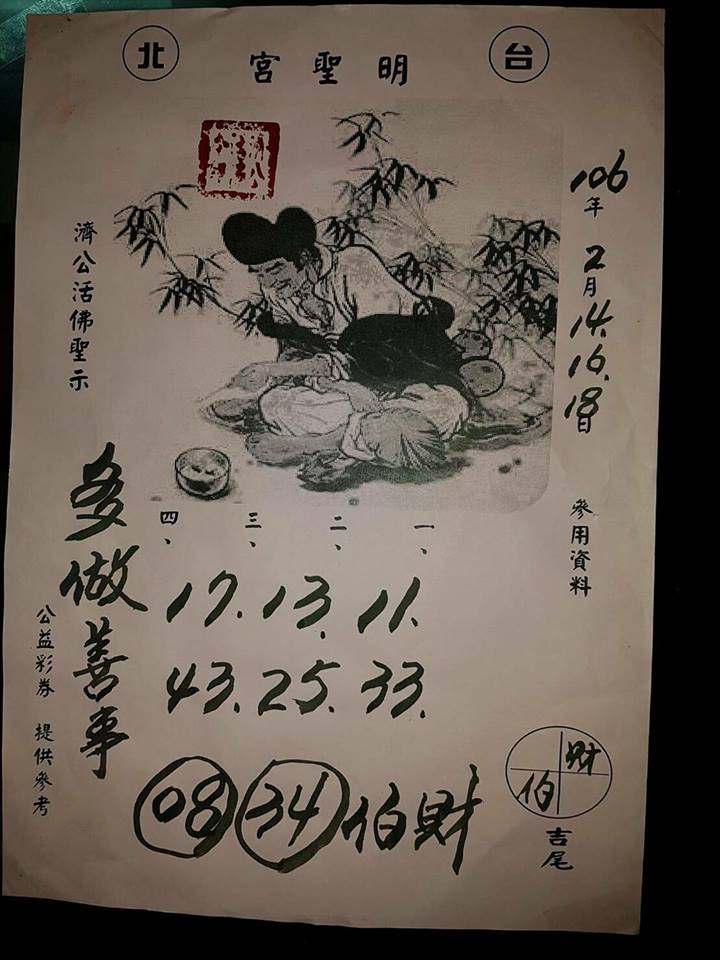 台北
明聖宮
106年2月14.16.18日
參用資料
濟公活佛聖示
一、二、三、四、
17.13.11.
43.25.33.
08 34 伯財
多做善事
公益彩券 提供參考
財伯
吉尾